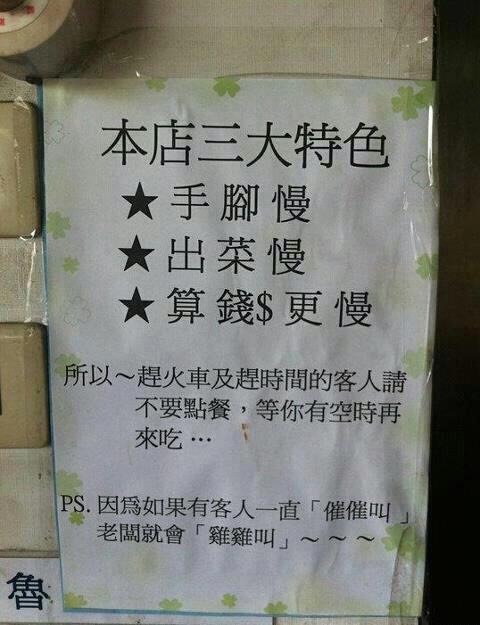 本店三大特色
★手腳慢
★出菜慢
★算錢$更慢
所以～趕火車及趕時間的客人請
不要點餐，等你有空時再
來吃…
PS. 因為如果有客人一直「催催叫」
老闆就會「雞雞叫」～～～
魯